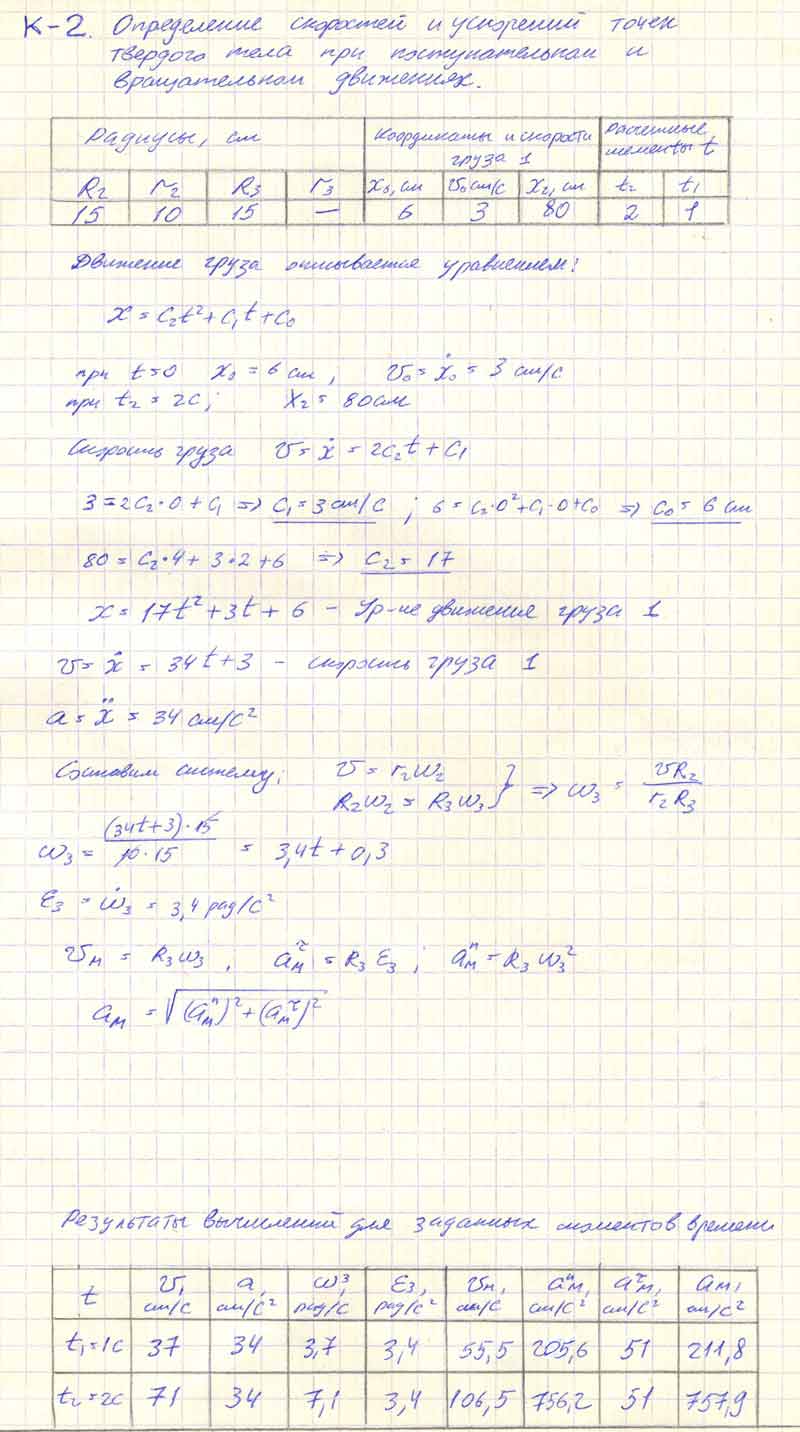 К-2. Определение скоростей и ускорений точек
твердого тела при поступательном и
вращательном движениях.
Радиусы, см | Координаты и скорости груза 1 | Расчетные моменты t
R₂ | r₂ | R₃ | r₃ | x₀, см | v₀ см/с | x₂, см | t₂ | t₁
15 | 10 | 15 | — | 6 | 3 | 80 | 2 | 1
Движение груза описывается уравнением:
x = C₂t² + C₁t + C₀
при t=0 x₀ = 6 см ; v₀ = ẋ₀ = 3 см/с
при t₂ = 2с ; x₂ = 80см
Скорость груза v = ẋ = 2C₂t + C₁
3 = 2C₂·0 + C₁ => C₁ = 3 см/с ; 6 = C₂·0² + C₁·0 + C₀ => C₀ = 6 см
80 = C₂·4 + 3·2 + 6 => C₂ = 17
x = 17t² + 3t + 6 – Ур-ие движение груза 1
v = ẋ = 34t + 3 – скорость груза 1
a = ẍ = 34 см/с²
Составим систему: v = r₂ω₂
R₂ω₂ = R₃ω₃ } => ω₃ = vR₂ / r₂R₃
ω₃ = (34t+3)·15 / 10·15 = 3,4t + 0,3
ε₃ = ω̇₃ = 3,4 рад/с²
vм = R₃ω₃ , aᵗм = R₃ε₃ ; aⁿм = R₃ω₃²
aм = √(aⁿм)² + (aᵗм)²
Результаты вычислений для заданных моментов времени
t | v, см/с | a, см/с² | ω³, рад/с | ε₃, рад/с² | vм, см/с | aⁿм, см/с² | aᵗм, см/с² | aм, см/с²
t₁=1с | 37 | 34 | 3,7 | 3,4 | 55,5 | 205,6 | 51 | 211,8
t₂=2с | 71 | 34 | 7,1 | 3,4 | 106,5 | 756,2 | 51 | 757,9